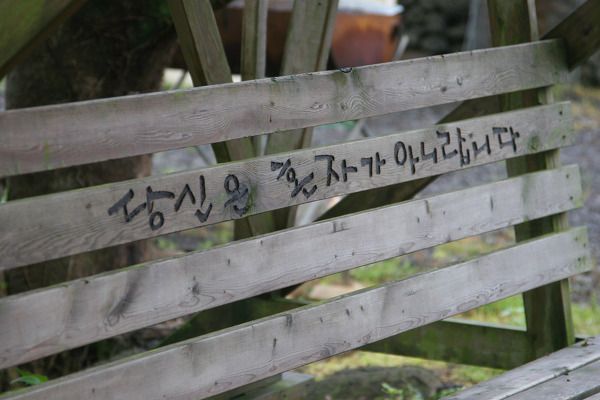 당신은 혼자가 아니랍니다